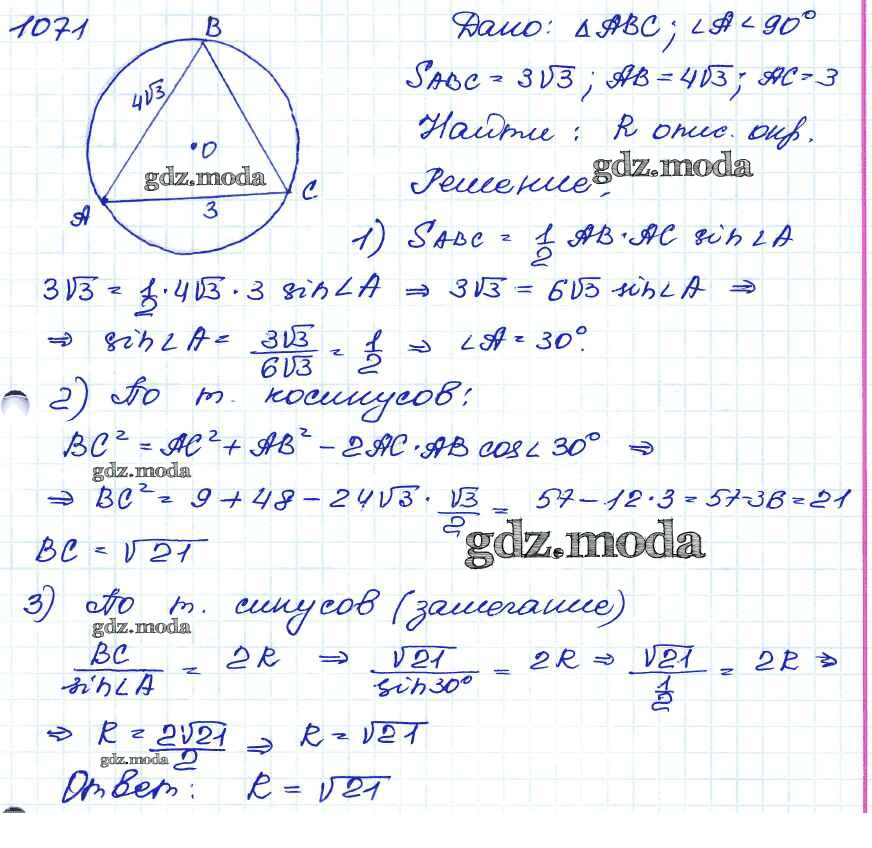 1071
B
4√3
O
A
3
C
gdz.moda
Дано: △ABC; ∠A<90°
S_ABC = 3√3; AB = 4√3; AC = 3
Найти: R опис. окр.
gdz.moda
Решение:
1) S_ABC = 1/2 AB·AC sin∠A
3√3 = 1/2·4√3·3 sin∠A ⇒ 3√3 = 6√3 sin∠A ⇒
⇒ sin∠A = 3√3/6√3 = 1/2 ⇒ ∠A = 30°.
2) По т. косинусов:
BC² = AC² + AB² - 2AC·AB cos∠30° ⇒
gdz.moda
⇒ BC² = 9 + 48 - 24√3 · √3/2 = 57 - 12·3 = 57-36 = 21
gdz.moda
BC = √21
3) По т. синусов (замечание)
gdz.moda
BC/sin∠A = 2R ⇒ √21/sin30° = 2R ⇒ √21/(1/2) = 2R ⇒
⇒ R = 2√21/2 ⇒ R = √21
gdz.moda
Ответ: R = √21